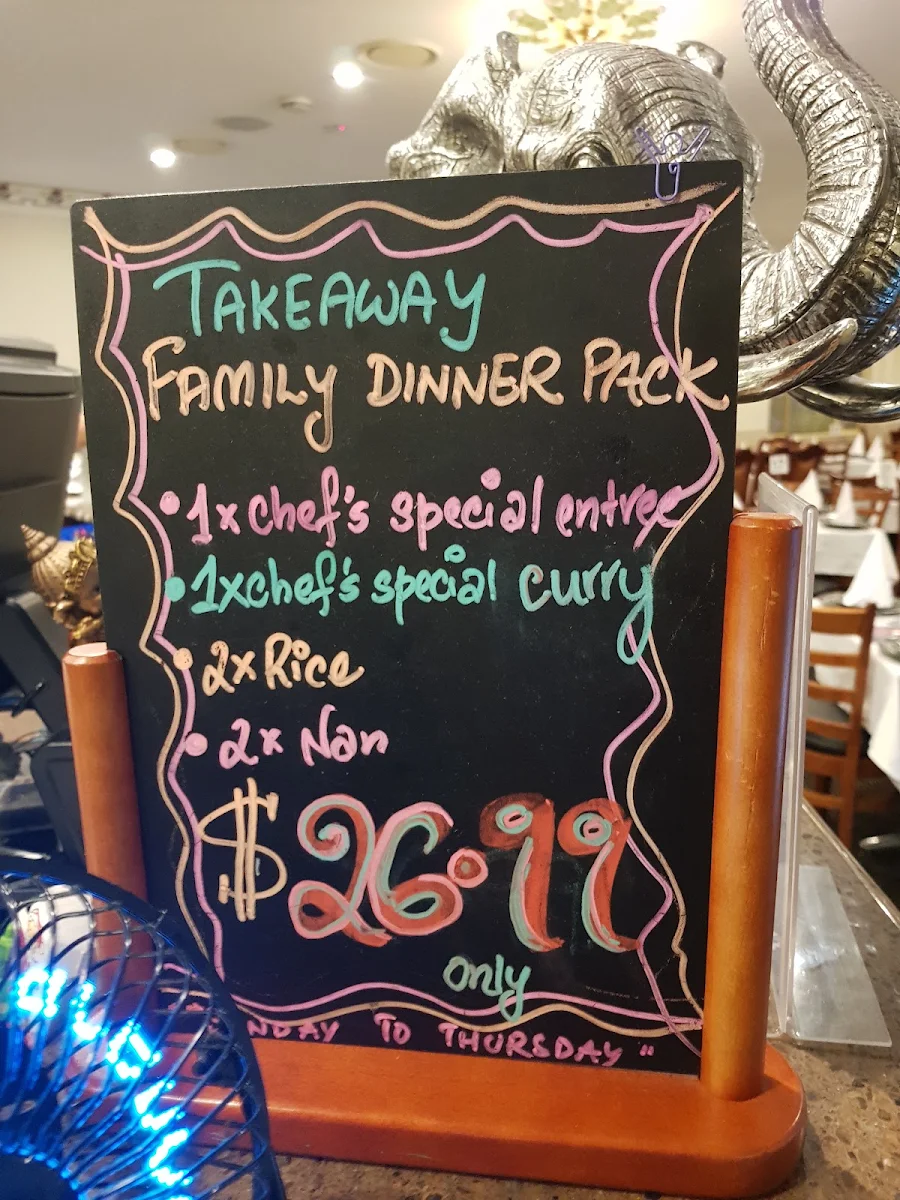 TAKEAWAY
FAMILY DINNER PACK
• 1x chef's special entree
• 1x chef's special curry
• 2x Rice
• 2x Nan
$26.99
only
NDAY TO THURSDAY "